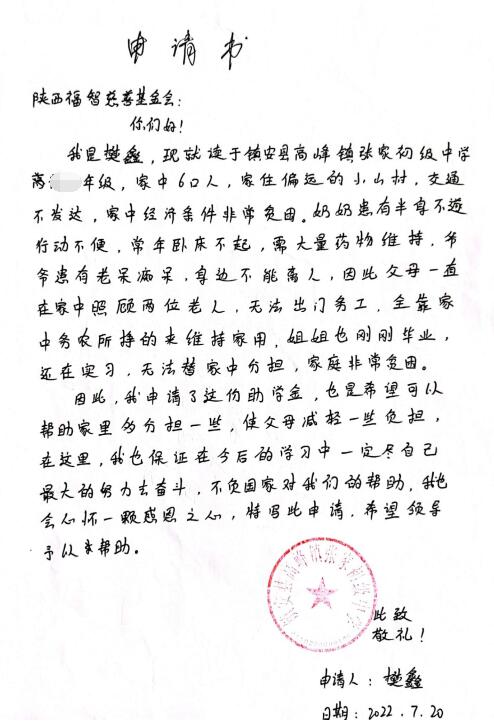 申请书
陕西福智慈善基金会:
你们好!
我是樊鑫,现就读于镇安县高峰镇张家初级中学
年级,家中6口人,家住偏远的小山村,交通
不发达,家中经济条件非常贫困。奶奶患有半身不遂
行动不便,常年卧床不起,需大量药物维持,爷
爷患有老呆痴呆,身边不能离人,因此父母一直
在家中照顾两位老人,无法出门务工,全靠家
中务农所挣的来维持家用,姐姐也刚刚毕业,
还在实习,无法替家中分担,家庭非常贫困。
因此,我申请了这份助学金,也是希望可以
帮助家里多分担一些,使父母减轻一些负担,
在这里,我也保证在今后的学习中一定尽自己
最大的努力去奋斗,不负国家对我们的帮助,我也
会心怀一颗感恩之心,特写此申请,希望领导
予以帮助。
镇安县高峰镇张家初级中学
此致
敬礼!
申请人:樊鑫
日期:2022.7.20